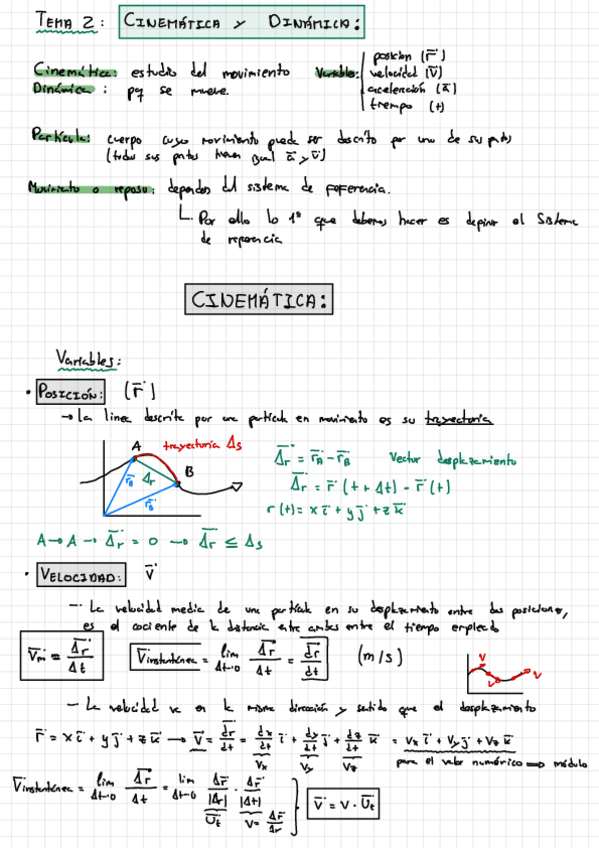 TEMA 2: CINEMÁTICA Y DINÁMICA:
Cinemática: estudio del movimiento Variables: posicion (r̄)
velocidad (v̄)
aceleración (ā)
tiempo (t)
Dinámica: pq se mueve.
Partícula: cuerpo cuyo movimiento puede ser descrito por uno de sus ptos
(todos sus ptos tienen igual ā y v̄)
Movimiento o reposo: depender del sistema de referencia.
Por ello lo 1º que debemos hacer es definir el Sistema
de referencia
CINEMÁTICA:
Variables:
• POSICIÓN: (r̄)
→ La linea descrita por una partícula en movimiento es su trayectoria
A trayectoria Δs
B
r̄A Δr r̄B
Δ̄r = r̄A - r̄B Vector desplazamiento
Δ̄r = r̄ (t + Δt) - r̄ (t)
r (t) = x ī + y j̄ + z k̄
A → A → Δ̄r = 0 → Δ̄r ≤ Δs
• VELOCIDAD: v̄
- La velocidad media de una partícula en su desplazamiento entre dos posiciones,
es el cociente de la distancia entre ambas entre el tiempo empleado
v̄m = Δ̄r / Δt v̄instantánea = lim Δt→0 Δ̄r / Δt = d̄r / dt (m/s)
v v v
- La velocidad va en la misma dirección y sentido que el desplazamiento
r̄ = x ī + y j̄ + z k̄ → v̄ = d̄r/dt = dx/dt ī + dy/dt j̄ + dz/dt k̄ = vx ī + vy j̄ + vz k̄
vx vy vz para el valor numérico ⇒ módulo
v̄instantánea = lim Δt→0 Δ̄r / Δt = lim Δt→0 Δ̄r / |Δr| · Δ̄r / |Δt| v̄ = v · ūt
ūt v = Δr̄ / Δr